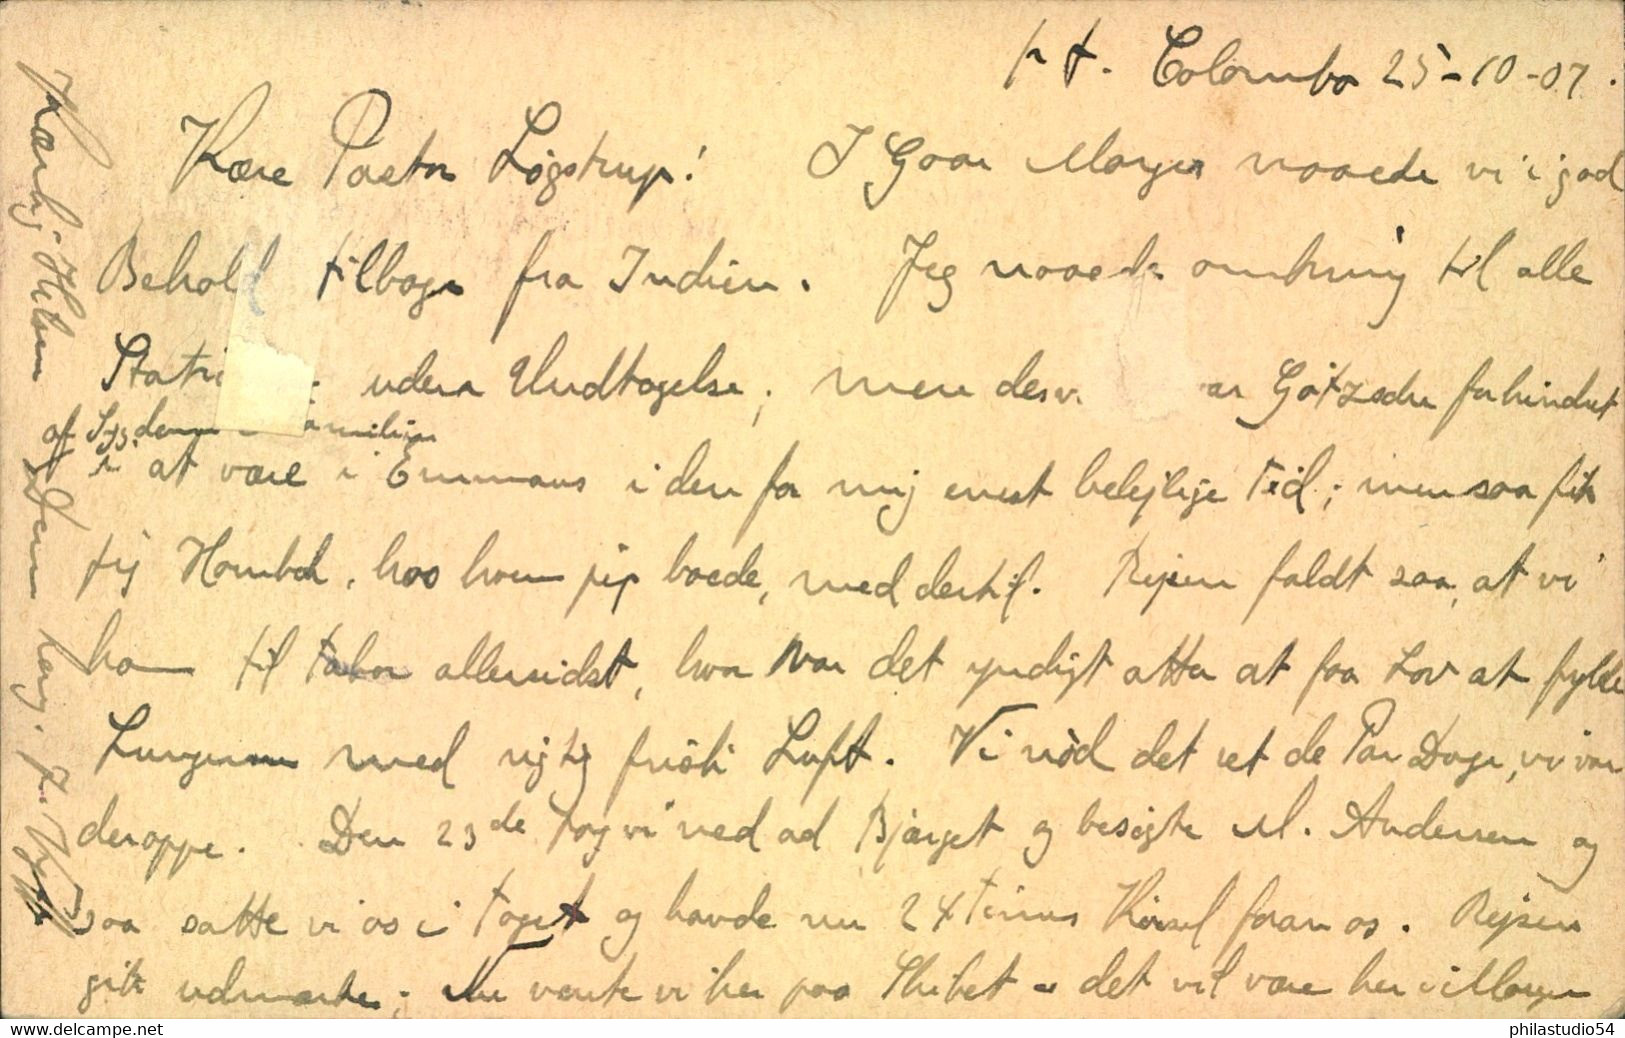 p t. Colombo 25-10-07.
Kære Pastor Løgstrup! I Gaar Morges naaede vi i god
Behold tilbage fra Indien. Jeg naaede omkring til alle
Stati uden Undtagelse; men desv. ar Götzsche forhindret
af Sygdom i Familien
i at være i Emmaus i den for mig enest belejlige Tid; men saa fik
jeg Hornbech, hos hvem jeg boede, med dertil. Rejsen faldt saa, at vi
kom til Tabor allersidst, hvor var det yndigt atter at faa Lov at fylde
Lungerne med rigtig frisk Luft. Vi nød det ret de Par Dage, vi var
deroppe. Den 23de tog vi ned ad Bjærget og besøgte M. Andersen og
saa satte vi os i Toget og havde nu 24 Timers Kørsel foran os. Rejsen
gik udmærket; Nu vente vi her paa Skibet - det vil være her i Morgen
Kærlig Hilsen Deres heng.
philastudio54